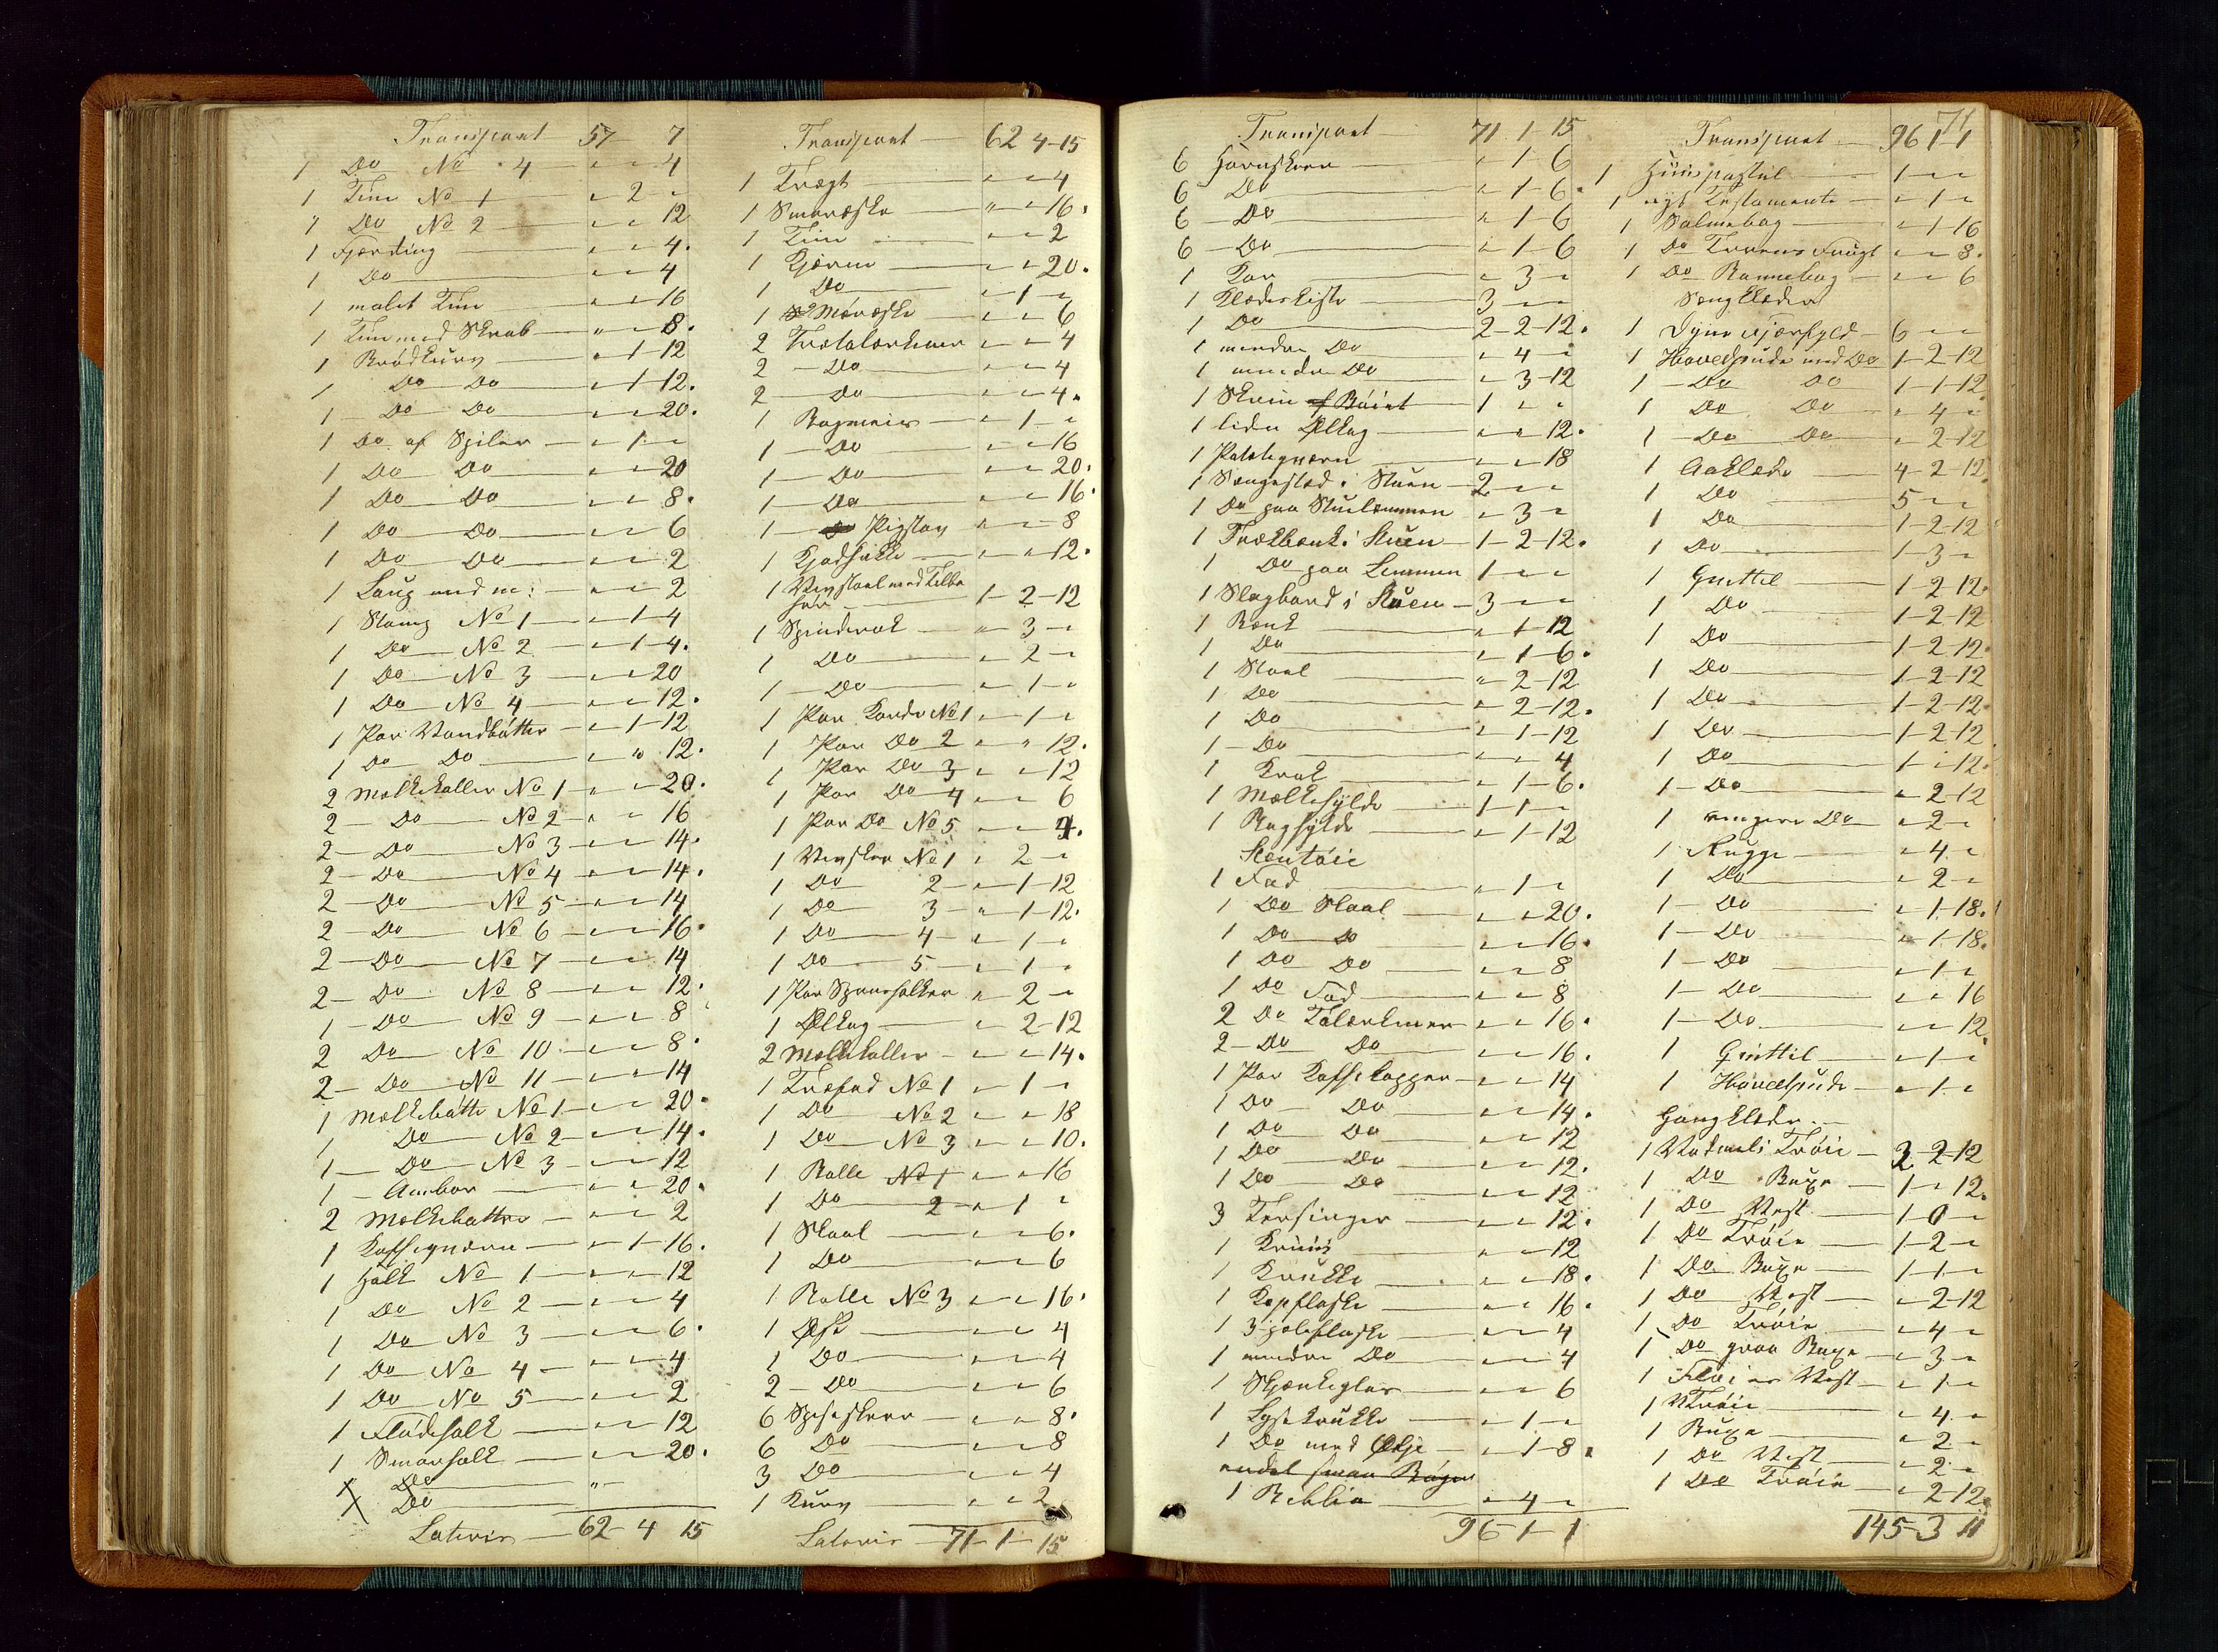 Transport 57 7
1 Do No 4 " " 4
1 Tine No 1 " 2 "
1 Do No 2 " " 12
1 Fjørding " " 4.
1 Do " " 4
1 malet Tine " " 16
1 Tine med Skrab " " 8.
1 Brødkurv " 1-12
1 Do Do " 1-12.
1 Do Do " " 20.
1 Do af Spiler " 1 "
1 Do Do " " 20
1 Do Do " " 8.
1 Do Do " " 6
1 Do Do " " 2
1 Laug med m: " " 2
1 Stamp No 1 " 1-4
1 Do No 2 " 1-4.
1 Do No 3 " " 20
1 Do No 4 " " 12.
1 Par Vandbøtter " 1-12
1 Do Do " " 12.
2 Melkekoller No 1 " " 20.
2 Do No 2 " " 16
2 Do No 3 " " 14.
2 Do No 4 " " 14.
2 Do No 5 " " 14
2 Do No 6 " " 16.
2 Do No 7 " " 14
2 Do No 8 " " 12.
1 Do No 9 " " 8
2 Do No 10 " " 8.
2 Do No 11 " " 14
1 Melkebøtte No 1 " " 20.
1 Do No 2 " " 14.
1 Do No 3 " " 12
1 Ambar " " 20.
2 Melkebøtter " " 2
1 Kaffeqværn " 1-16.
1 Holk No 1 " " 12
1 Do No 2 " " 4
1 Do No 3 " " 6.
1 Do No 4 " " 4
1 Do No 5 " " 2
1 Flødeholk " " 12
1 Smørholk " " 20.
1 Do " "
1 Do
Lateris 62 4 15
Transport 62 4-15
1 Tragt " " 4
1 Smøræske " " 16.
1 Tine " " 2
1 Kjærne " " 20.
1 Do " 1 "
1 Møræske " " 6
2 Trætalærkner " " 4
2 Do " " 4
2 Do " " 4.
1 Bagmeis " 1 "
1 Do " " 16
1 Do " " 20.
1 Do " " 16.
1 Pigstav " " 8
1 Kjødsække " " 12.
1 Vevstoel med Tilbe
hør 1-2-12
1 Spinderok " 3 "
1 Do " 2 "
1 Do " 1 "
1 Par Karde No 1 " 1 "
1 Par Do 2 " " 12.
1 Par Do 3 " " 12
1 Par Do 4 " " 6
1 Par Do No 5 " " 4.
1 Vevskee No 1 " 2 "
1 Do 2 " 1-12
1 Do 3 " 1-12.
1 Do 4 " 1 "
1 Do 5 " 1 "
1 Par " 2 "
1 Ølkag " 2-12
2 Melkekoller " " 14.
1 Træfad No 1 " 1 "
1 Do No 2 " " 18
1 Do No 3 " " 10.
1 Balle No 1 " " 16
1 Do 2 " 1 "
1 Skaal " " 6.
1 Do " " 6
1 Balle No 3 " " 16.
1 Øse " " 4
1 Do " " 4
2 Do " " 6
6 Spiseskeer " " 8.
6 Do " " 8
3 Do " " 4
1 Kurv " " 2
Lateris 71-1-15
Transport 71 1-15
6 Hornskeer " 1-6
6 Do " 1-6.
6 Do " 1-6
6 Do " 1-6
1 Kar " 3 "
1 Klædeskiste 3 " "
1 Do 2-2-12.
1 mindre Do " 4 "
1 mindre Do " 3-12
1 Skrin af Bøiet 1 " "
1 liden Ølkag " " 12.
1 Potetqværn " " 18
1 Sængested i Stuen 2 " "
1 Do paa Stuelæmmen " 3 "
1 Trækbænk i Stuen 1-2-12.
1 Do paa Lemmen 1 " "
1 Slagbord i Stuen 3 " "
1 Bænk " 1-12
1 Do " 1-6.
1 Stoel " 2-12
1 Do " 2-12.
1 Do " 1-12
1 Do " " 4
1 Krak " 1-6.
1 Mælkehylde 1-1 "
1 Baghylde " 1-12
Steentøie
1 Fad " 1 "
1 Do Skaal " " 20.
1 Do Do " " 16.
1 Do Do " " 8
1 Do Fad " " 8
2 Do Talærkner " " 16.
2 Do Do " " 16.
1 Par Kaffekopper " " 14
1 Do Do " " 14.
1 Do Do " " 12
1 Do Do " " 12.
1 Do Do " " 12
3 Tersinger " " 12.
1 Kruus " " 12
1 Krukke " " 18.
1 Kopflaske " " 16.
1 3 pæleflaske " " 4
1 mindre Do " " 4
1 Skjænkeglas " " 6
1 Lysekrukke " 1 "
1 Do med Olje " 1-8.
endel smaa Bøger
1 Beblia " 4 "
96-1-1
71
Transport 96 1-1
1 Huuspostil 1 " "
1 nyt Testamente " 1 "
1 Salmebog " 1-16
1 Do Troens Frugt " " 8.
1 Do Bønnebog " " 6
Sengklæder
1 Dyne Fjærfyld 6 " "
1 Hovedpude med Do 1-2-12
1 Do Do 1-1-12
1 Do Do " 4 "
1 Do Do " 2-12
1 Aaklæde 4-2-12
1 Do 5 " "
1 Do 1-2-12
1 Do 1-3 "
1 Grettel 1-2-12.
1 Do 1-2-12
1 Do 1-2-12.
1 Do 1-2-12
1 Do 1-2-12.
1 Do 1-2-12
1 Do 1 " 12.
1 Do " 2-12
1 ringere Do " 2 "
1 Rugge " 4 "
1 Do " 2 "
1 Do " 1-18.
1 Do " 1-18.
1 Do " 1 "
1 Do " " 16
1 Do " " 12.
1 Grettel " 1 "
1 Hovedpude " 1 "
Gangklæder
1 Vadmels Trøie 3 2-12
1 Do Buxe 1 " 12.
1 Do Vest 1-0 "
1 Do Trøie 1-2 "
1 Do Buxe 1-1 "
1 Do Vest " 2-12
1 Do Trøie " 4 "
1 Do graa Buxe " 3 "
1 Fløiels Vest " 1 "
1 Trøie " 4 "
1 Buxe " 2 "
1 Do Vest " 2 "
1 Do Trøie " 2-12.
145-3 11